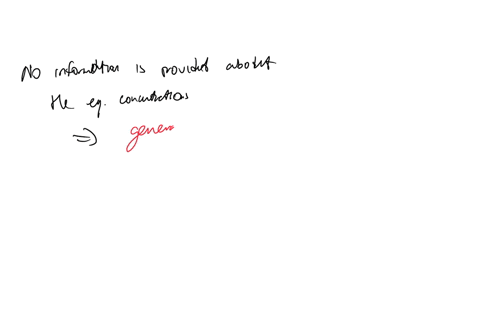 No information is provided about
the eq. concentrations
⇒ gener